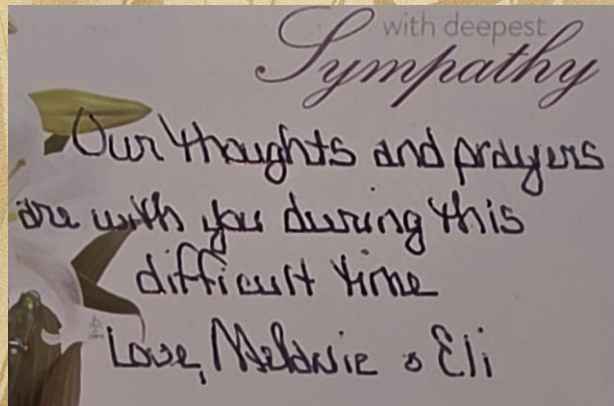 with deepest
Sympathy
Our thoughts and prayers
are with you during this
difficult time
Love, Melanie & Eli